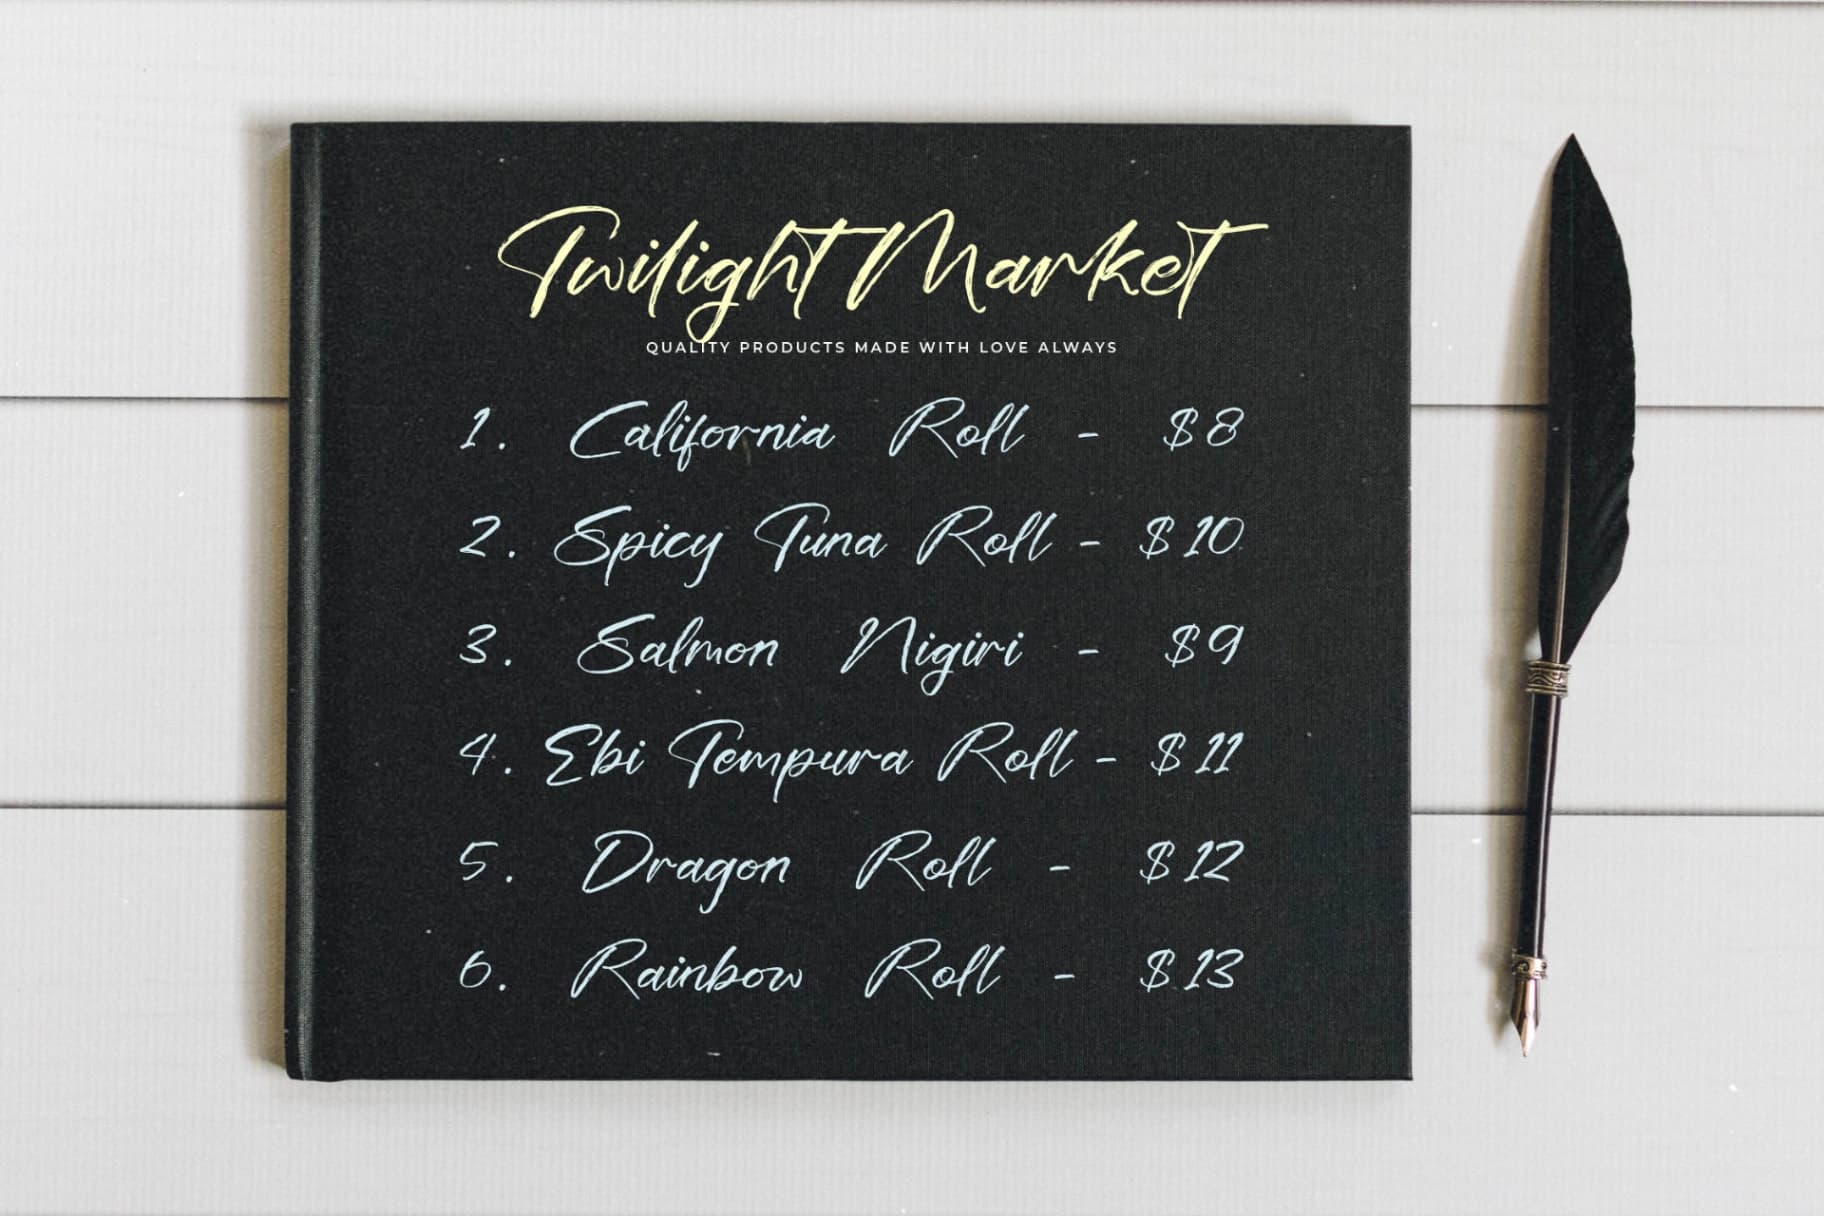 Twilight Market
QUALITY PRODUCTS MADE WITH LOVE ALWAYS
1. California Roll - $8
2. Spicy Tuna Roll - $10
3. Salmon Nigiri - $9
4. Ebi Tempura Roll - $11
5. Dragon Roll - $12
6. Rainbow Roll - $13